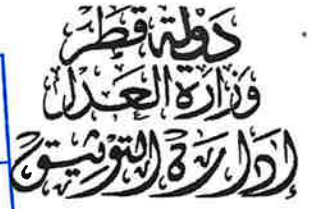 دولة قطر
وزارة العدل
إدارة التوثيق